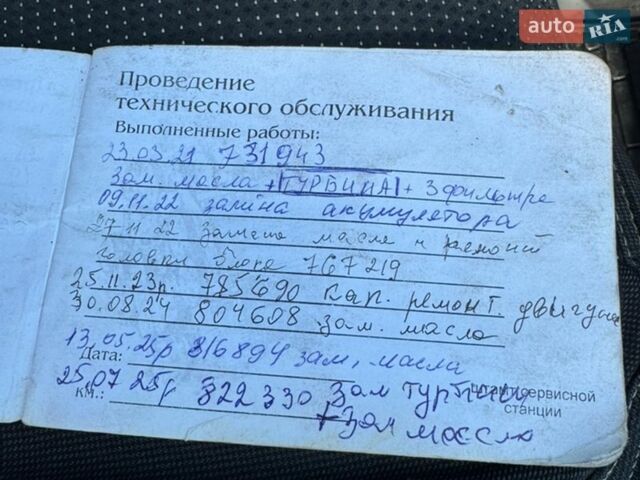 auto RIA .com
Проведение
технического обслуживания
Выполненные работы:
23.03.21 731943
Зам. масла + ТУРБИНА + 3 фильтра
09.11.22 заміна акумулетора
27 11 22 Замена масла и ремонт
головки блока 767219
25.11.23р. 785690 кап. ремонт. двигуна
30.08.24 804608 зам. масла
13.05.25р 816894 зам, масла
Дата:
25.07 25р 822 330 Зам Турбини
км.: штамп сервисной
станции
+ Зам масла